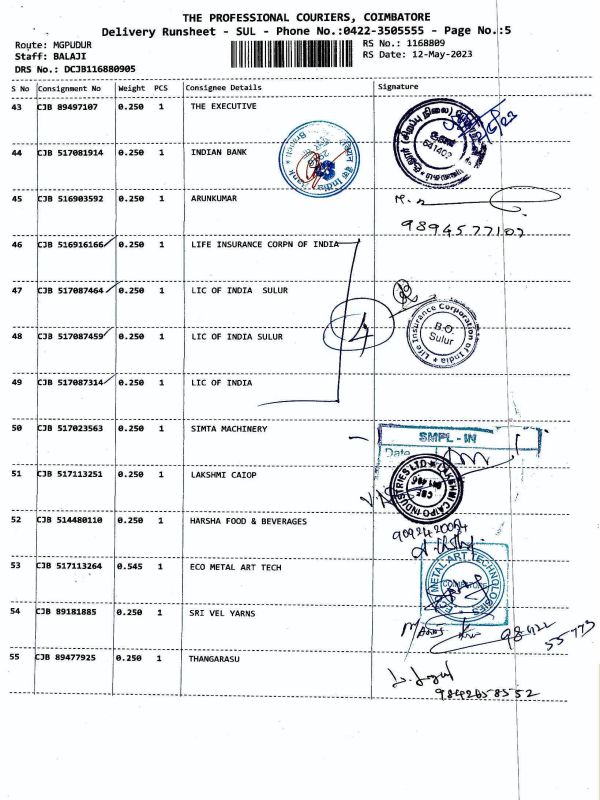 THE PROFESSIONAL COURIERS, COIMBATORE
Delivery Runsheet - SUL - Phone No.:0422-3505555 - Page No.:5
Route: MGPUDUR
RS No.: 1168809
Staff: BALAJI
RS Date: 12-May-2023
DRS No.: DCJB116880905
S No Consignment No Weight PCS Consignee Details Signature
43 CJB 89497107 0.250 1 THE EXECUTIVE
641402
44 CJB 517081914 0.250 1 INDIAN BANK
45 CJB 516903592 0.250 1 ARUNKUMAR
46 CJB 516916166 0.250 1 LIFE INSURANCE CORPN OF INDIA
47 CJB 517087464 0.250 1 LIC OF INDIA SULUR
4
Life Insurance Corporation of India
B.O.
Sulur
48 CJB 517087459 0.250 1 LIC OF INDIA SULUR
49 CJB 517087314 0.250 1 LIC OF INDIA
50 CJB 517023563 0.250 1 SIMTA MACHINERY
SMPL - IN
Date
51 CJB 517113251 0.250 1 LAKSHMI CAIOP
LAKSHMI CAIPO INDUSTRIES LTD
CBE
52 CJB 514480110 0.250 1 HARSHA FOOD & BEVERAGES
53 CJB 517113264 0.545 1 ECO METAL ART TECH
ECO METAL ART TECHNOLOGIES
COIMBATORE
54 CJB 89181885 0.250 1 SRI VEL YARNS
55 CJB 89477925 0.250 1 THANGARASU
9842658552